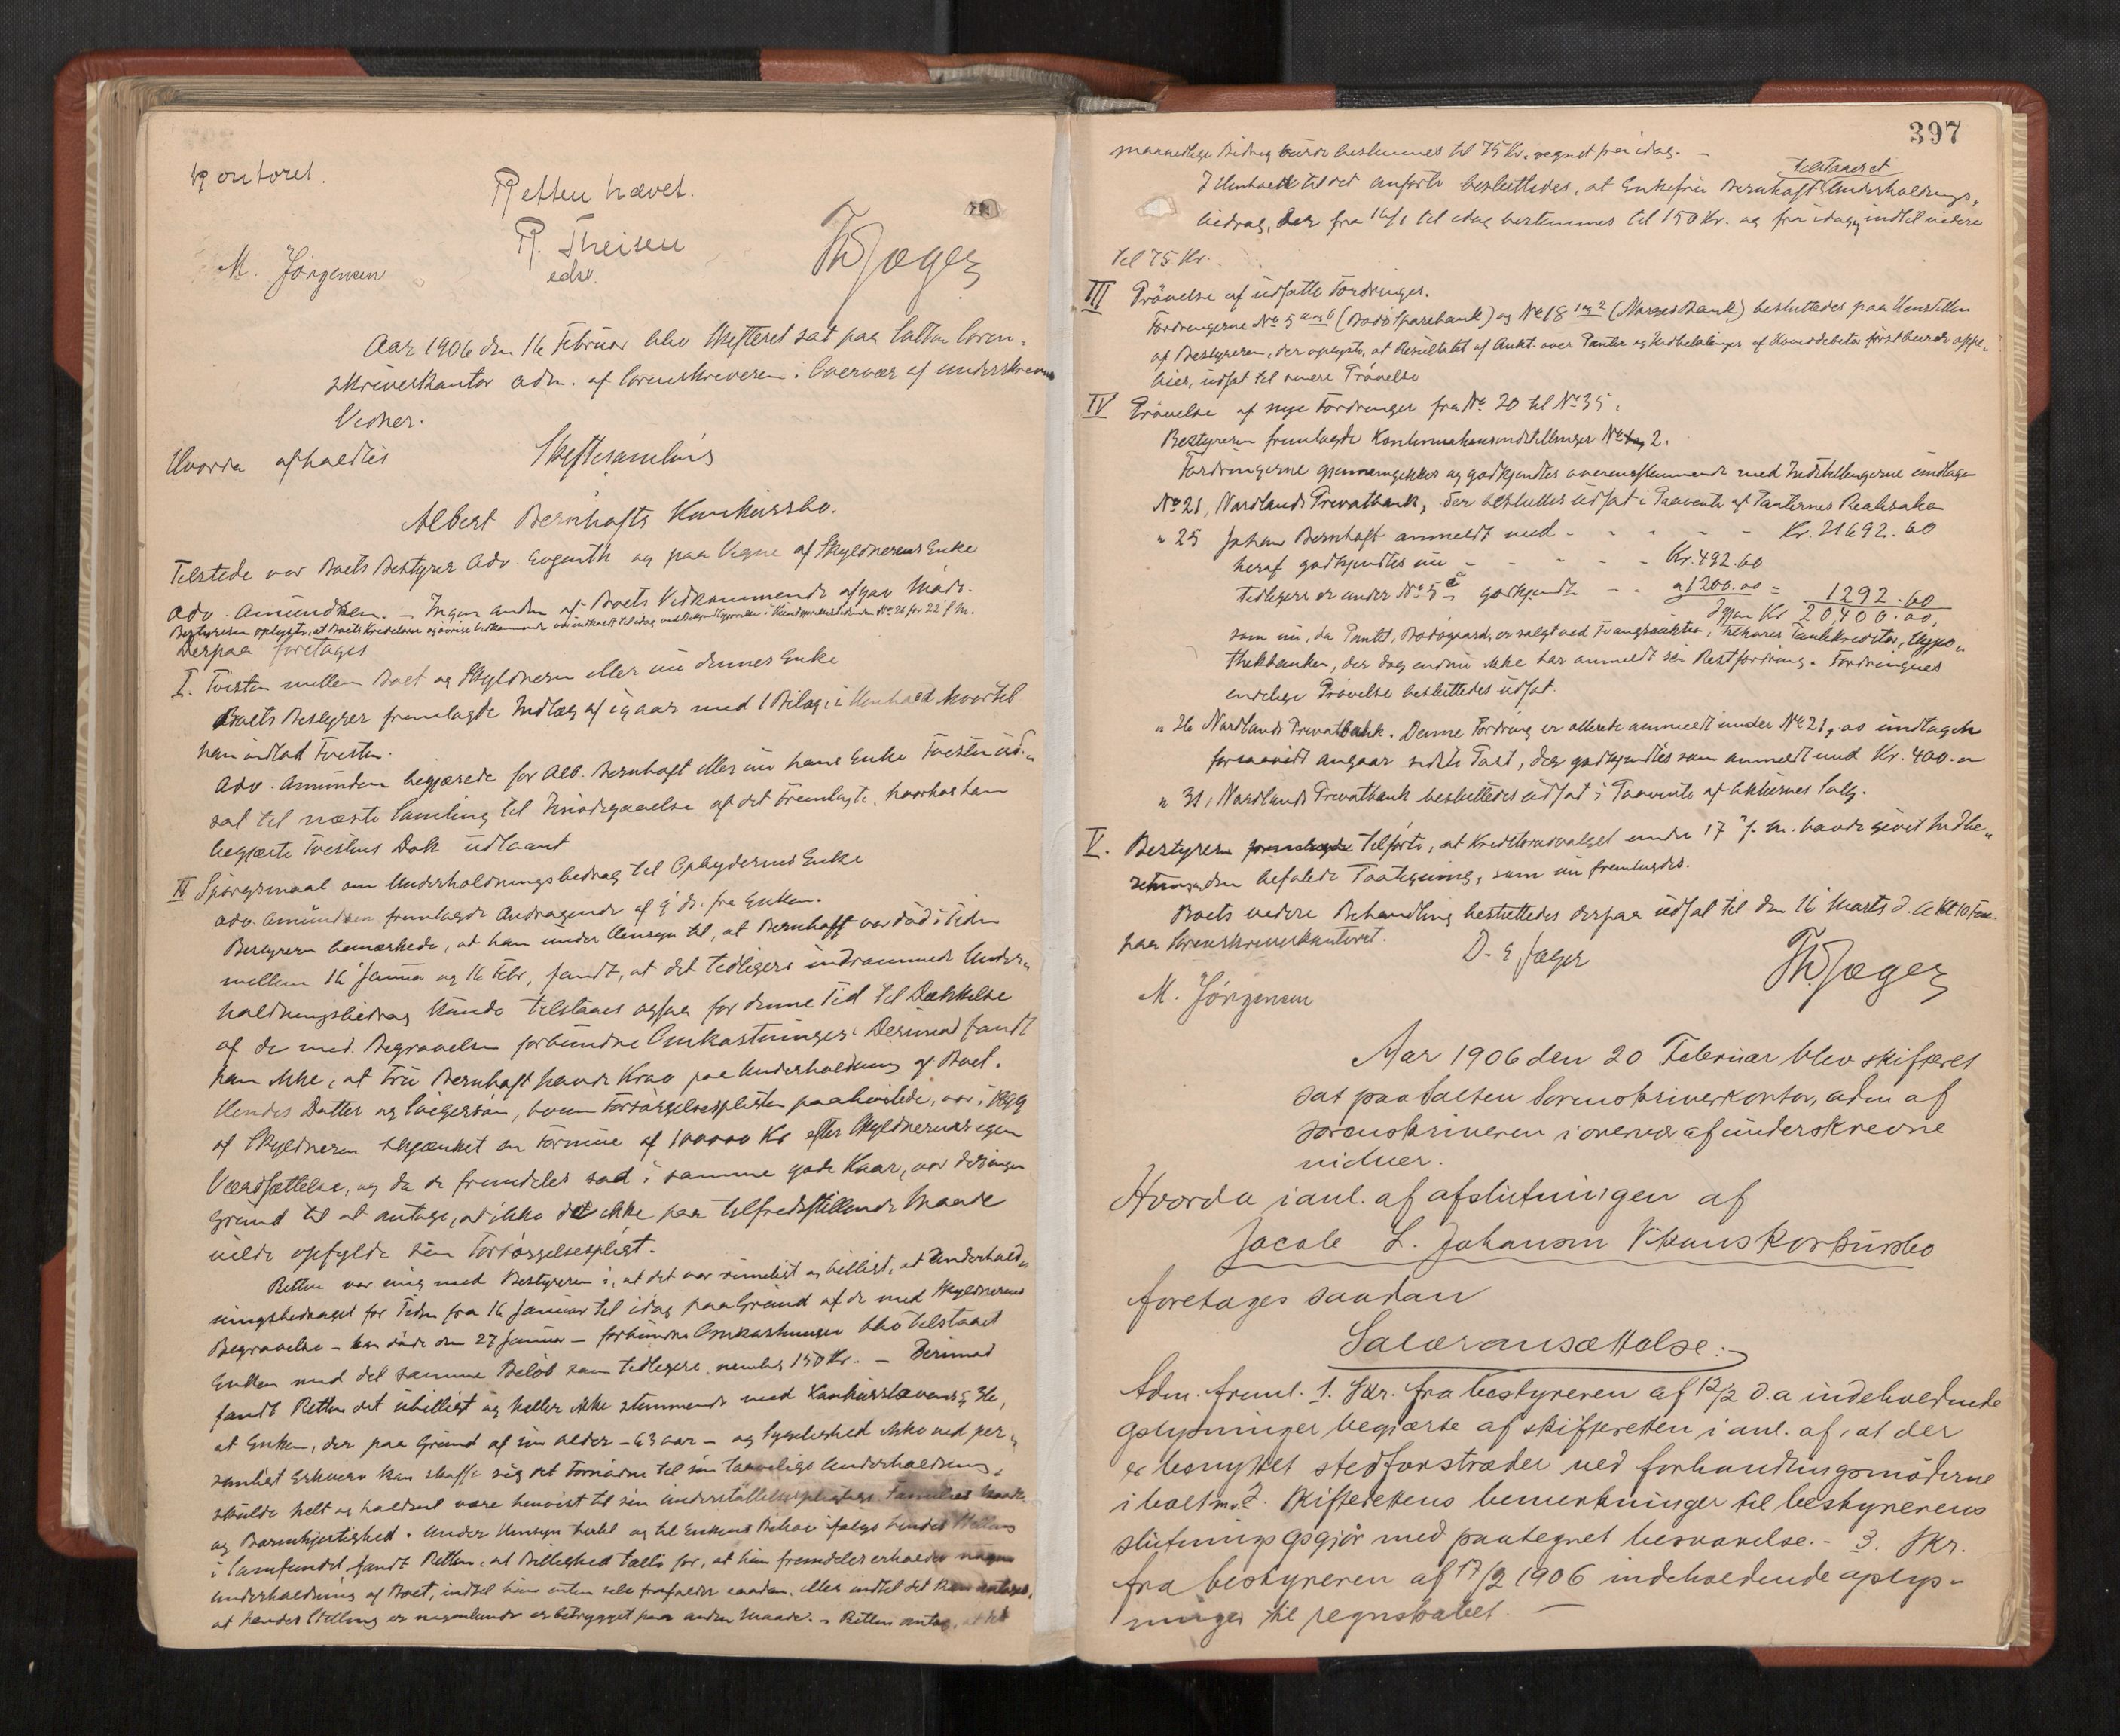 kontoret.
Retten hævet.
R. Theisen
edsv.
M. Jörgensen
Th Jæger
Aar 1906 den 16 Februar blev Skifteret sat paa Salten Soren-
skriverkontor adm. af Sorenskriveren i Overvær af underskrevne
Vidner.
Hvorda afholdtes
Skiftesamling
Albert Bernhofts Konkursbo.
Tilstede var Boets Bestyrer Adv. Evjenth og paa Vegne af Skyldnerens Enke
Adv. Amundsen. – Ingen anden af Boets Vedkommende afgav Møde.
Bestyreren oplyste, at Boets Kreditorer og øvrige Vedkommende var indkaldt til idag ved Bekjendtgjørelse i Kundgjørelsestidende No 26 for 22 f. M.
Derpaa foretages
I. Tvisten mellem Boet og Skyldneren eller nu dennes Enke
Boets Bestyrer fremlagde Indlæg af igaar med 1 Bilag i Henhold hvortil
han indlod Tvisten.
Adv. Amundsen begjærede for Alb. Bernhoft eller nu hans Enke Tvisten ud-
sat til næste Samling til Imødegaaelse af det Fremlagte, hvorhos han
begjærte Tvistens Dok. udlaant
II Spørgsmaal om Underholdningsbidrag til Opbyderens Enke
Adv. Amundsen fremlagde Andragende af 9 ds. fra Enken.
Bestyreren bemærkede, at han under Hensyn til, at Bernhoft var død i Tiden
mellem 16 Januar og 16 Febr., fandt, at det tidligere indrømmede Under-
holdningsbidrag kunde tilstaaes ogsaa for denne Tid til Dækkelse
af de med Begravelsen forbundne Omkostninger. Derimod fandt
han ikke, at Fru Bernhoft havde Krav paa Underholdning af Boet.
Hendes Datter og Svigersøn, hvem Forsørgelsespligten paahvilede, var i 1899
af Skyldneren skjænket en Formue af 100000 Kr efter Skyldnerens egen
Værdsættelse, og da de fremdeles sad i samme gode Kaar, var der ingen
Grund til at antage, at ikke de ikke paa tilfredsstillende Maade
vilde opfylde sin Forsørgelsespligt.
Retten var enig med Bestyreren i, at det var rimeligt og billigt, at Underhold-
ningsbidraget for Tiden fra 16 Januar til idag paa Grund af de med Skyldnerens
Begravelse – han døde den 27 Januar – forbundne Omkostninger blev tilstaaet
Enken med det samme Beløb som tidligere, nemlig 150 Kr. – Derimod
fandt Retten det ubilligt og heller ikke stemmende med Konkurslovens § 36,
at Enken, der paa Grund af sin Alder – 63 aar – og Sygelighed ikke ved per-
sonligt Erhverv kan skaffe sig det Fornødne til sin tarvelige Underholdning,
skulde helt og holdent være henvist til sin understøttelsespligtige Families Naade
og Barmhjertighed. Under Hensyn hertil og til Enkens Behov ifølge hendes Stilling
i Samfundet fandt Retten, at Billighed talte for, at hun fremdeles erholder nogen
Underholdning af Boet, indtil hun enten selv frafalder saadan eller indtil det kan antages,
at hendes Stilling er nogenlunde er betrygget paa anden Maade. – Retten antog, at det
397
maanedlige Bidrag burde bestemmes til 75 Kr. regnet fra idag. –
tilstaaet
I Henhold til det anførte besluttedes, at Enkefru Bernhoft Underholdnings-
bidrag, der fra 16/1 til idag bestemmes til 150 Kr. og fra idag indtil videre
til 75 Kr.
III Prøvelse af udsatte Fordringer.
Fordringerne No 5 a og b (Bodø Sparebank) og No 18 1 og 2 (Norges Bank) besluttedes paa Henstillen
af Bestyreren, der oplyste, at Resultatet af Aukt. over Panter og Indbetalinger af Hoveddebitor først burde oppe-
bies, udsat til senere Prøvelse
IV Prøvelse af nye Fordringer fra No 20 til No 35.
Bestyreren fremlagde Konkursboindstillinger No 1 og 2.
Fordringerne gjennemgikkes og godkjendtes overensstemmende med Indstillingerne undtagen
No 21, Nordlands Privatbank, der besluttes udsat i Paavente af Panternes Realisation
" 25 Johan Bernhoft anmeldt med - - - - - Kr. 21692.60
heraf godkjendtes nu - - - - - Kr. 492.60
tidligere er under No 5 c godkjendt - - " 1200.00 = 1292.60
Igjen Kr 20,400.00,
som nu, da Pantet, Bodøgaard, er solgt ved Tvangsauktion, tilkommer Pantekreditor, Hypo-
thekbanken, der dog endnu ikke har anmeldt sin Restfordring. Fordringens
endelige Prøvelse besluttedes udsat.
" 26 Nordlands Privatbank. Denne Fordring er allerede anmeldt under No 21, as undtagen
forsaavidt angaar sidste Post, der godkjendtes som anmeldt med Kr. 400.00
" 31, Nordlands Privatbank besluttedes udsat i Paavente af Aktiernes Salg.
V. Bestyreren fremlagde tilførte, at Kreditorudvalget under 17 f. M. havde givet Indbe-
retningen den befalede Paategning, som nu fremlagdes.
Boets videre Behandling besluttedes derpaa udsat til den 16 Marts d. A. Kl 10 Form.
paa Sorenskriverkontoret.
D. E Jæger
Th Jæger
M. Jörgensen
Aar 1906 den 20 Februar blev skifteret
sat paa Salten Sorenskriverkontor, adm af
sorenskriveren i overvær af underskrevne
vidner.
Hvorda i anl. af afslutningen af
Jacob L. Johansen Vikans Konkursbo
foretages saadan
Salæransættelse:
Adm. freml. 1. Skr. fra bestyreren af 12/2 d.a indeholdende
oplysninger begjærte af skifteretten i anl. af, at der
er benyttet stedfortræder ved forhandlingsmøderne
i boet m. 2. Skifterettens bemerkninger til bestyrerens
slutningsopgjør med paategnet besvarelse. – 3. Skr.
fra bestyreren af 17/2 1906 indeholdende oplys-
ninger til regnskabet. –